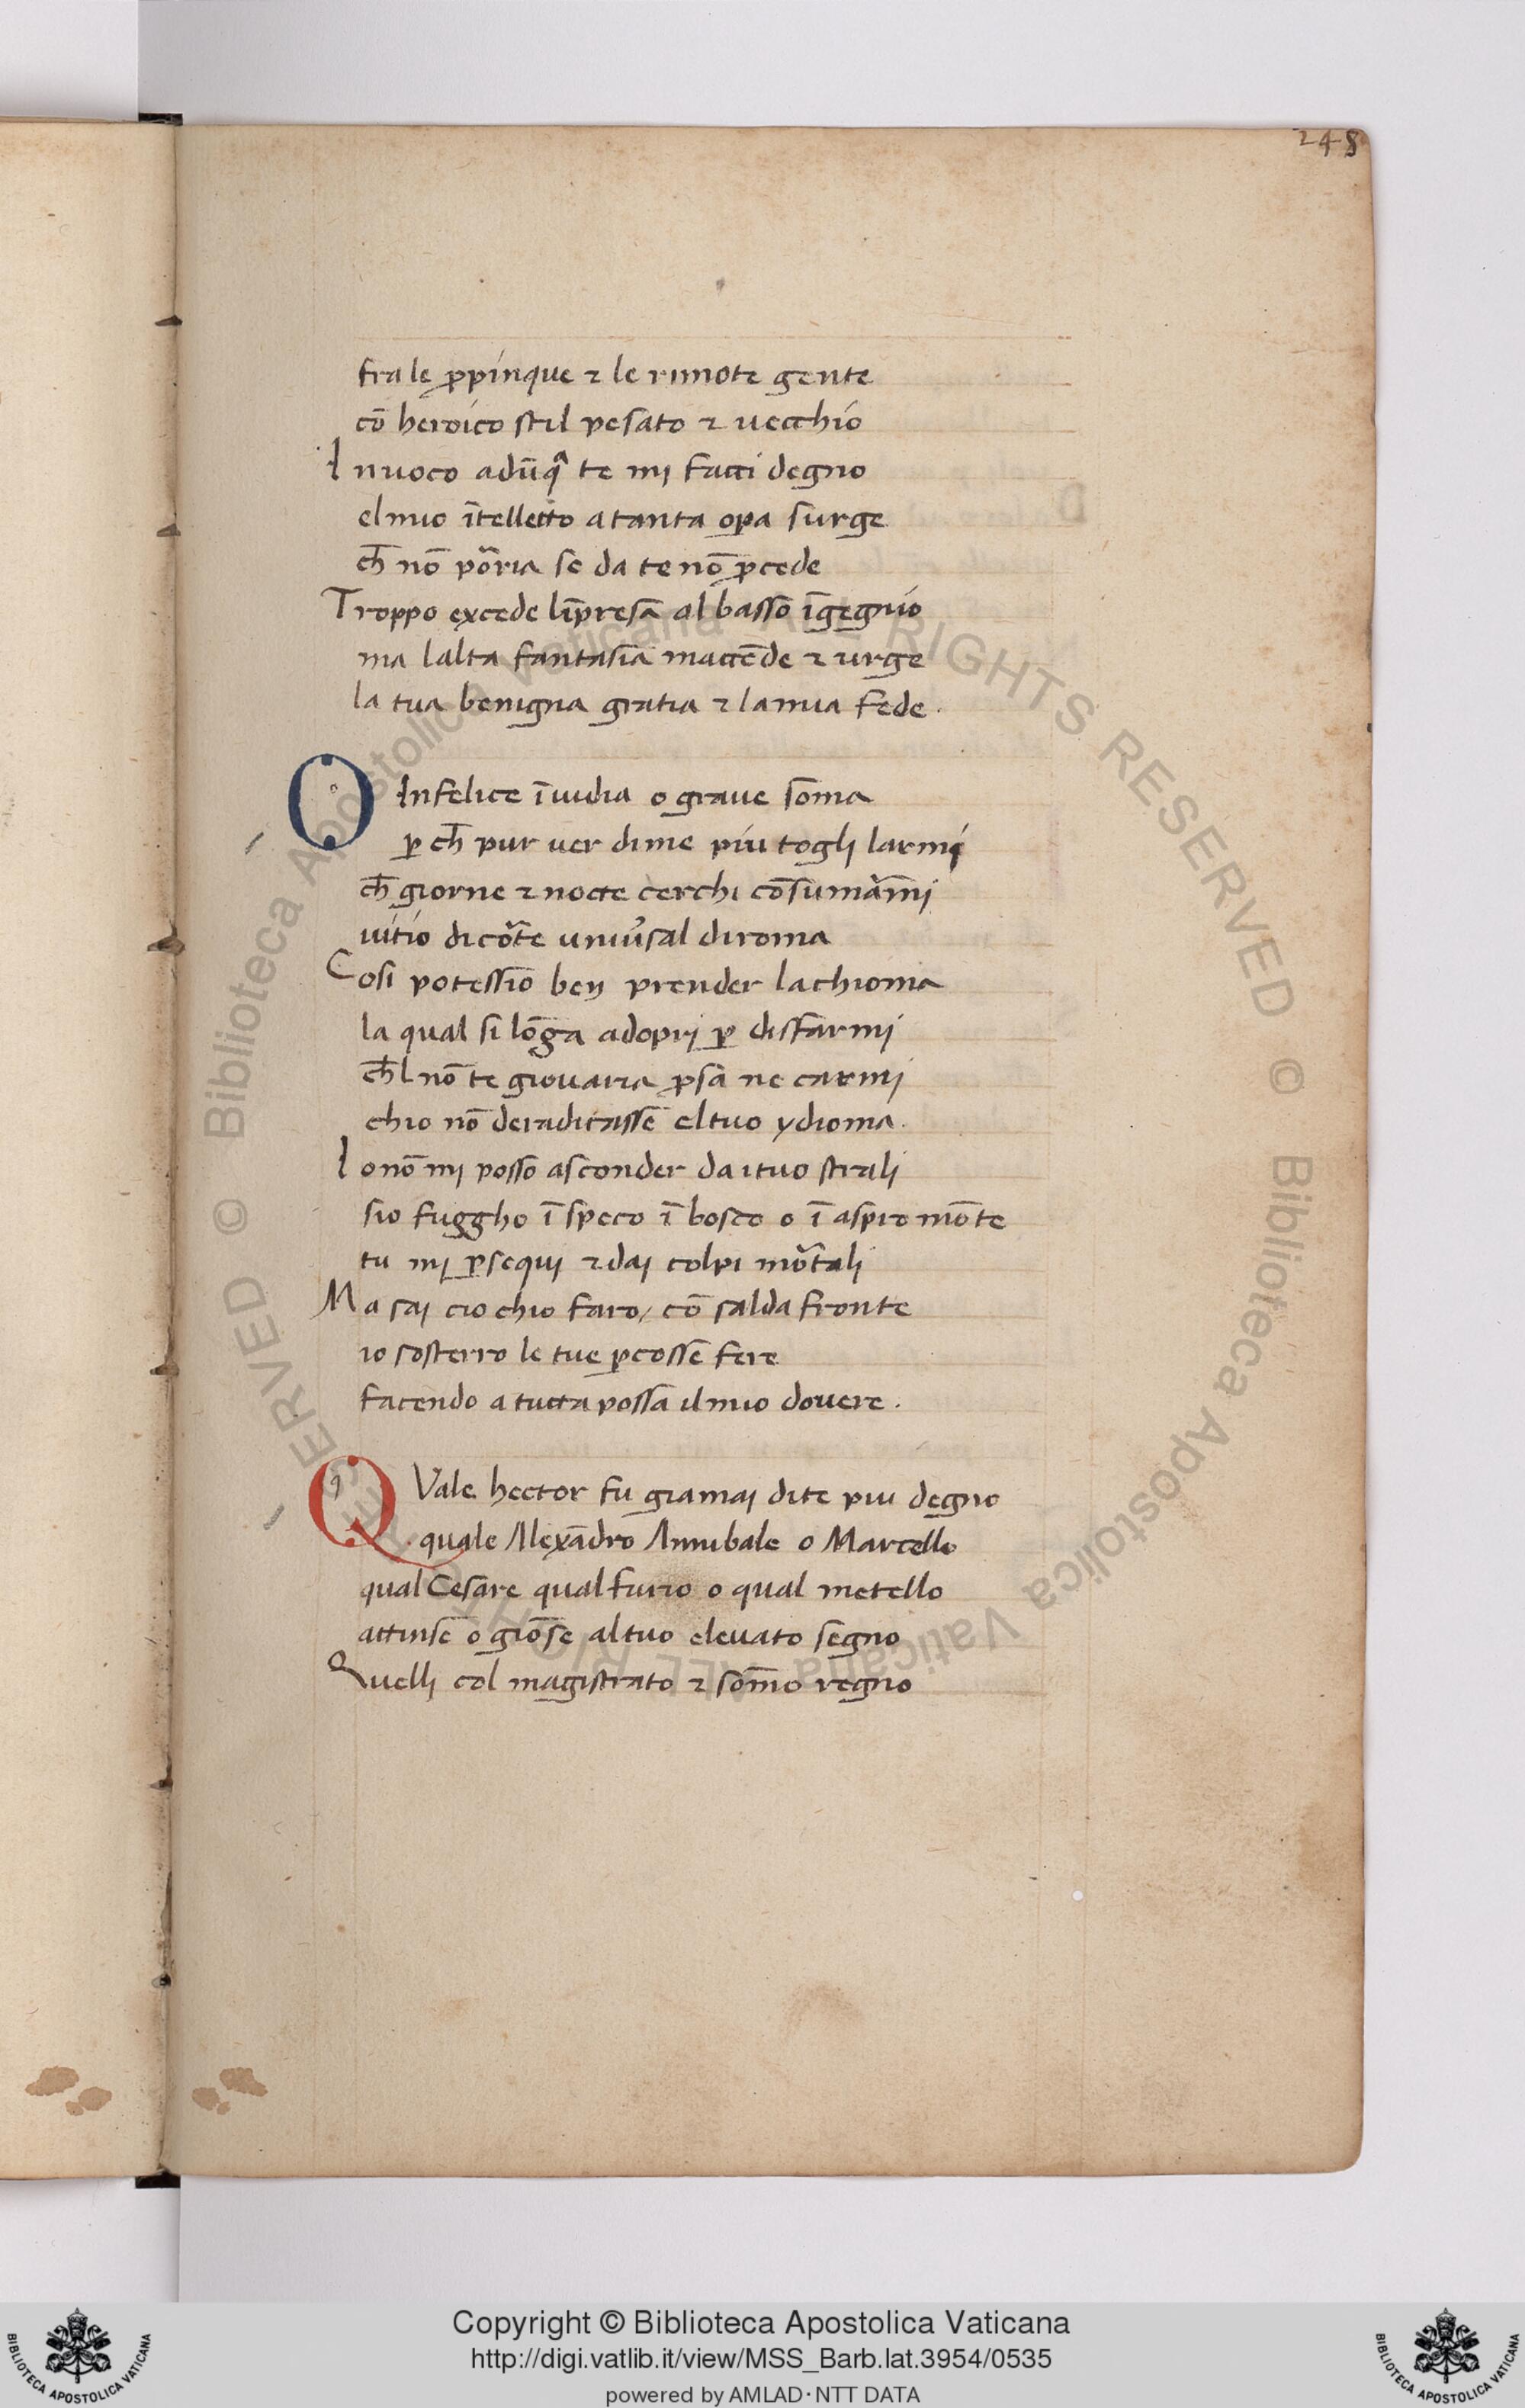 248
fra le ꝓpinque ⁊ le rimote gente
cō heroico stil pesato ⁊ uecchio
Inuoco adūqᵃ te mi facci degno
el mio ītelletto a tanta oꝑa surge
ch̄ nō poria se da te nō ꝓcede
Troppo excede līpresa al basso īgegnio
ma lalta fantasia maccēde ⁊ urge
la tua benigna gratia ⁊ la mia fede.
O Infelice īuidia o graue soma
ꝑ ch̄ pur uer di me piu togli larmi
ch̄ giorne ⁊ nocte cerchi cōsumarmi
uitio di corte uniu͛sal di roma
Cosi potessio ben prender la chioma
la qual si lōga adopri ꝑ disfarmi
ch̄l nō te giouaria ꝓsa ne carmi
chio nō deradicasse el tuo ydioma.
Io nō mi posso asconder da i tuo strali
sio fuggho ī speco ī bosco o ī aspro mōte
tu mi ꝑsequi ⁊ dai colpi mortali
Ma sai cio chio faro / cō salda fronte
io sosterro le tue ꝑcosse fere
facendo a tutta possa il mio douere.
QVale hector fu giamai di te piu degno
quale Alexādro Annibale o Marcello
qual Cesare qual furio o qual metello
attinse o giōse al tuo eleuato segno
Quelli col magistrato ⁊ som̄o regno
Copyright © Biblioteca Apostolica Vaticana
http://digi.vatlib.it/view/MSS_Barb.lat.3954/0535
powered by AMLAD·NTT DATA